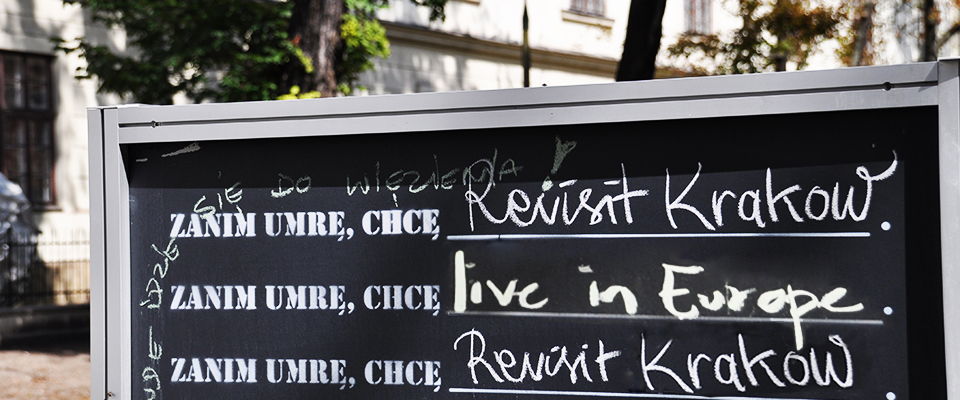 SIĘ DO WIĘZIENIA!
ZANIM UMRĘ, CHCĘ Revisit Krakow.
ZANIM UMRĘ, CHCĘ live in Europe.
ZANIM UMRĘ, CHCĘ Revisit Krakow.